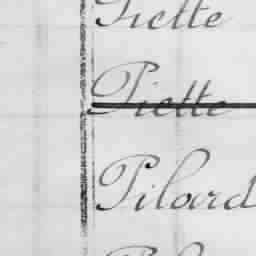 Piette
Piette
Pilard